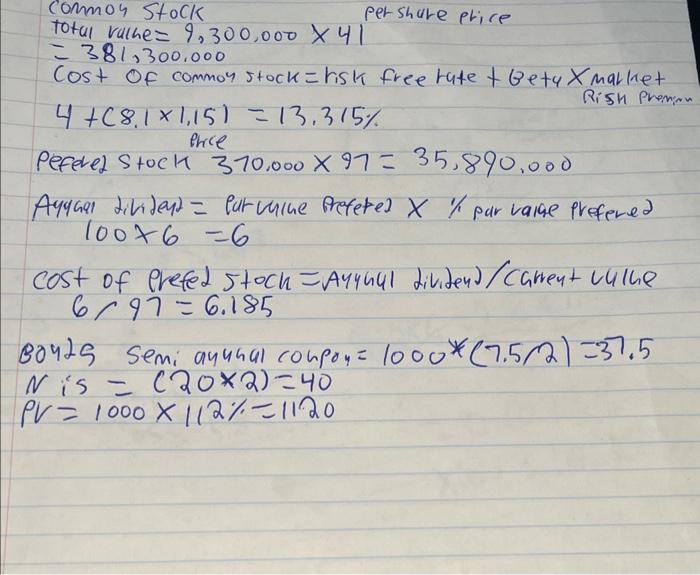 Common Stock per share price
total value = 9,300,000 X 41
= 381,300,000
Cost Of common stock = risk free rate + Beta X market
Risk Premium
4 + (8.1 x 1.15) = 13.315%
Price
Pefered Stock 370,000 X 97 = 35,890,000
Annual dividend = Par value Prefered X % par value Prefered
100 x 6 = 6
Cost of Prefed Stock = Annual dividend / Current value
6 / 97 = 6.185
Bonds semi annual coupon = 1000 * (7.5/2) = 37.5
N is = (20 x 2) = 40
PV = 1000 X 112% = 1120